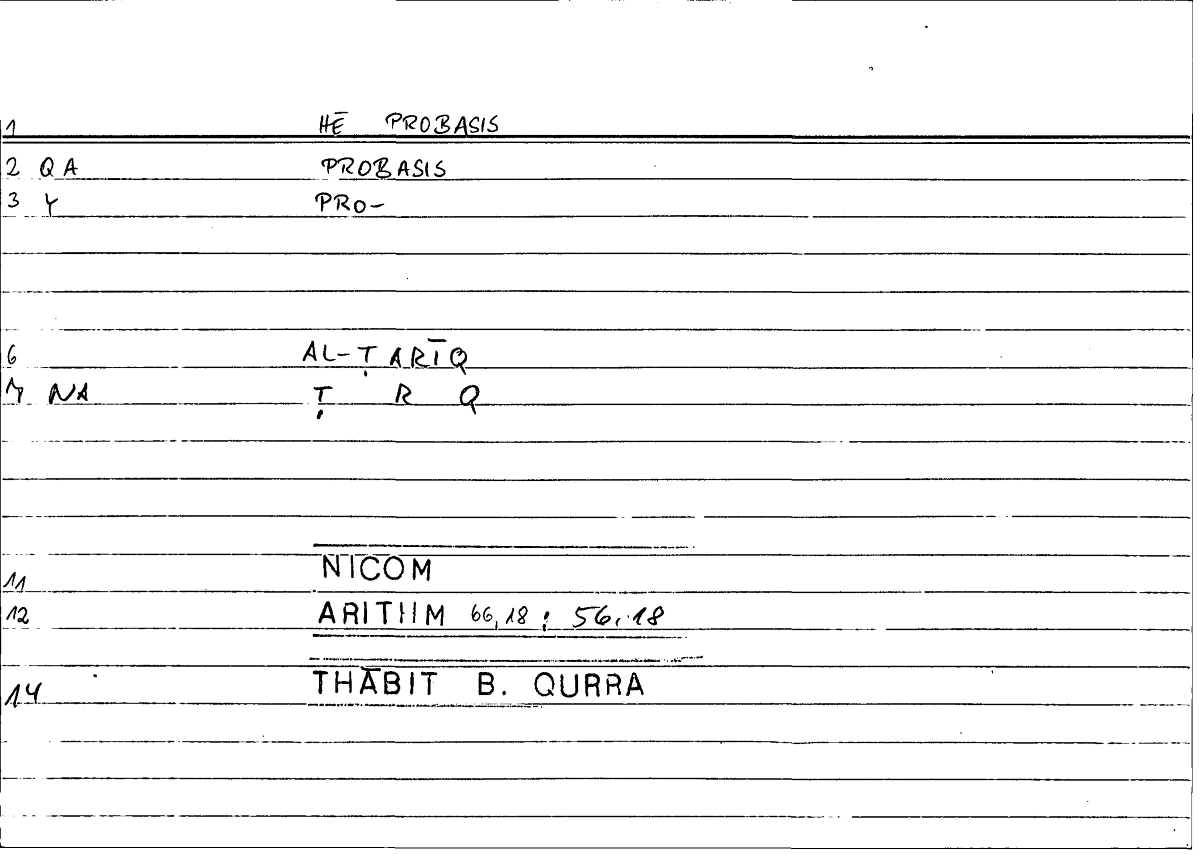 1 HĒ PROBASIS
2 QA PROBASIS
3 Y PRO-
6 AL-ṬARĪQ
7 NA Ṭ R Q
11 NICOM
12 ARITHM 66,18 ; 56,18
14 THĀBIT B. QURRA